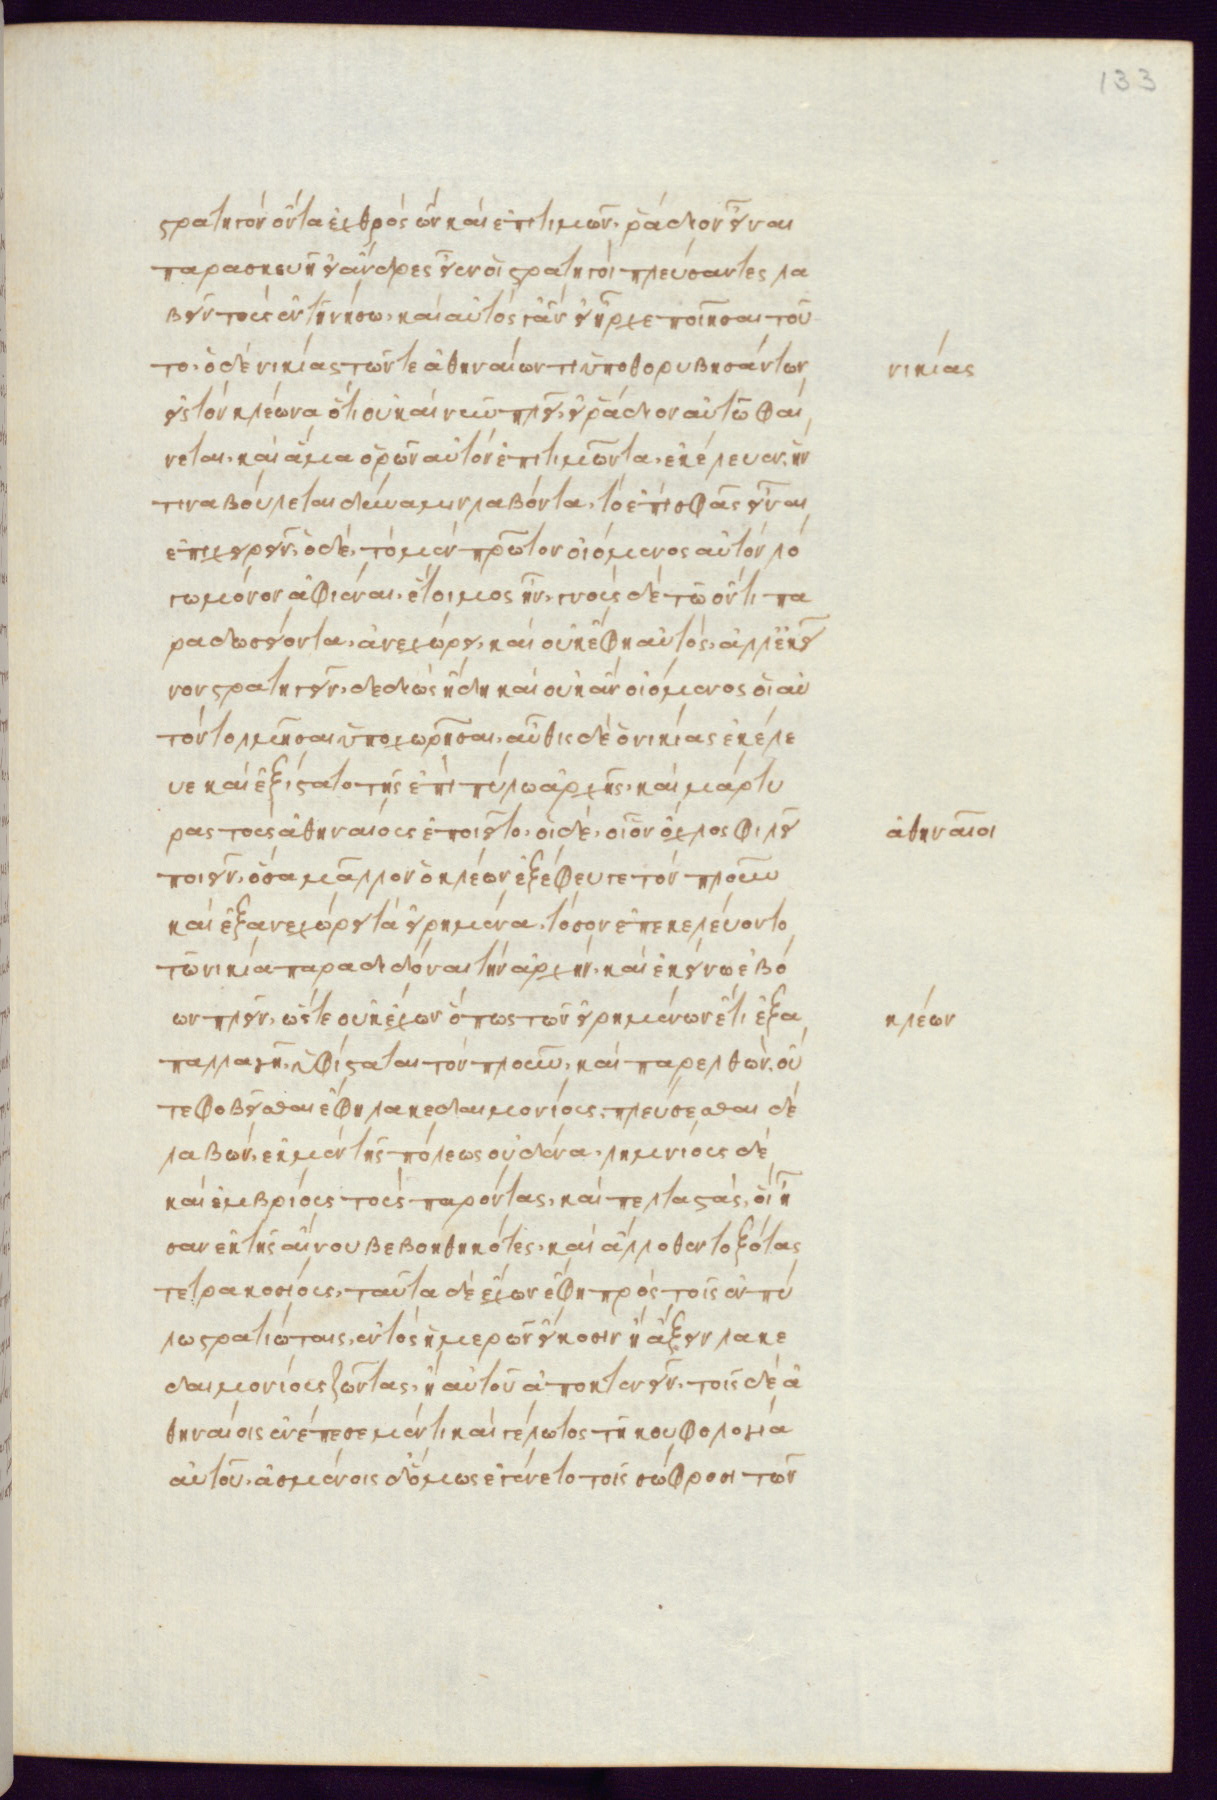 133
στρατηγὸν ὄντα ἐχθρὸς ὢν καὶ ἐπιτιμῶν, ῥάδιον εἶναι
παρασκευῇ εἰ ἄνδρες εἶεν οἱ στρατηγοὶ πλεύσαντες λα
βεῖν τοὺς ἐν τῇ νήσῳ, καὶ αὐτός γ' ἂν εἰ ἦρχε ποιῆσαι τοῦ
το. ὁ δὲ νικίας τῶν τε ἀθηναίων τι ὑποθορυβησάντων
νικίας
ἐς τὸν κλέωνα ὅτι οὐ καὶ νῦν πλεῖ, εἰ ῥάδιον αὐτῷ φαί
νεται, καὶ ἅμα ὁρῶν αὐτὸν ἐπιτιμῶντα, ἐκέλευεν, ἥν
τινα βούλεται δύναμιν λαβόντα, τὸ ἐπὶ σφᾶς εἶναι
ἐπιχειρεῖν. ὁ δὲ, τὸ μὲν πρῶτον οἰόμενος αὐτὸν λό
γῳ μόνον ἀφιέναι, ἑτοῖμος ἦν, γνοὺς δὲ τῷ ὄντι πα
ραδωσείοντα, ἀνεχώρει, καὶ οὐκ ἔφη αὐτὸς, ἀλλ' ἐκεῖ
νον στρατηγεῖν, δεδιὼς ἤδη καὶ οὐκ ἂν οἰόμενος οἱ αὐ
τὸν τολμῆσαι ὑποχωρῆσαι, αὖθις δὲ ὁ νικίας ἐκέλε
υε καὶ ἐξίστατο τῆς ἐπὶ πύλῳ ἀρχῆς, καὶ μάρτυ
ρας τοὺς ἀθηναίους ἐποιεῖτο. οἱ δὲ, οἷον ὄχλος φιλεῖ
ἀθηναῖοι
ποιεῖν, ὅσα μᾶλλον ὁ κλέων ἐξέφευγε τὸν πλοῦν
καὶ ἐξανεχώρει τὰ εἰρημένα, τόσον ἐπεκελεύοντο
τῷ νικίᾳ παραδιδόναι τὴν ἀρχὴν, καὶ ἐκείνῳ ἐβό
ων πλεῖν, ὥστε οὐκ ἔχων ὅπως τῶν εἰρημένων ἔτι ἐξα
κλέων
παλλαγῇ, ὑφίσταται τὸν πλοῦν, καὶ παρελθὼν, οὔ
τε φοβεῖσθαι ἔφη λακεδαιμονίους, πλεύσεσθαι δὲ
λαβὼν, ἐκ μὲν τῆς πόλεως οὐδένα, λημνίους δὲ
καὶ ἰμβρίους τοὺς παρόντας, καὶ πελταστὰς, οἳ ἦ
σαν ἔκ τῆς αἴνου βεβοηθηκότες, καὶ ἄλλοθεν τοξότας
τετρακοσίους, ταῦτα δὲ ἔχων ἔφη πρὸς τοῖς ἐν πύ
λῳ στρατιώταις, ἐντὸς ἡμερῶν εἴκοσιν ἢ ἄξειν λακε
δαιμονίους ζῶντας, ἢ αὐτοῦ ἀποκτενεῖν. τοῖς δὲ ἀ
θηναίοις ἐνέπεσε μέν τι καὶ γέλωτος τῇ κουφολογίᾳ
αὐτοῦ, ἀσμένοις δ' ὅμως ἐγένετο τοῖς σώφροσι τῶν